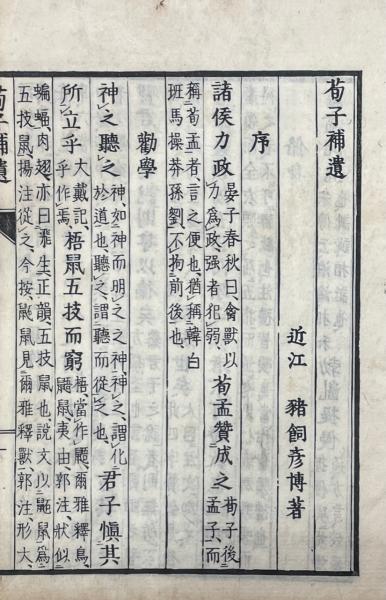 荀子補遺
近江 豬飼彦博著
序
諸侯力政晏子春秋曰禽獸以力爲政强者犯弱、荀孟贊成之荀子後孟子、而
稱荀孟者、言之便也、猶稱韓白班馬操莽孫劉、不拘前後也、
勸學
神之聽之神、如神而明之之神、神之、謂化於道也、聽之、謂聽而從之也、君子愼其
所立乎大戴記、乎作焉、梧鼠五技而窮梧當作鼯、爾雅釋鳥、鼯鼠、夷由、郭注狀似
蝙蝠、肉翅、亦曰飛生、正韻、五技鼠也說文以鼫鼠爲
五技鼠、揚注從之、今按、鼫鼠見爾雅釋獸、郭注形大、
荀子補遺